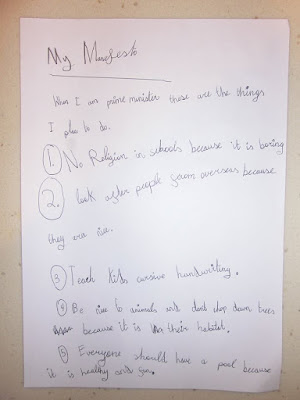 My Manifesto
When I am prime minister these are the things
I plan to do.
1. No Religion in schools because it is boring
2. look after people from overseas because
they are nice.
3 Teach Kids cursive handwriting.
4 Be nice to animals and dont chop down trees
because it is their habitat.
5 Everyone should have a pool because
it is healthy and fun.